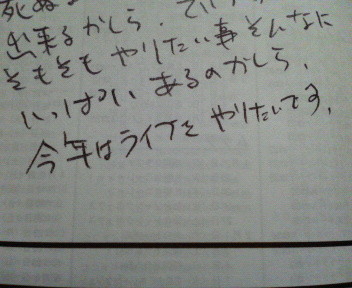 死ぬ
出来るかしら。ていう
そもそも やりたい事そんなに
いっぱい あるのかしら。
今年はライブを やりたいです。